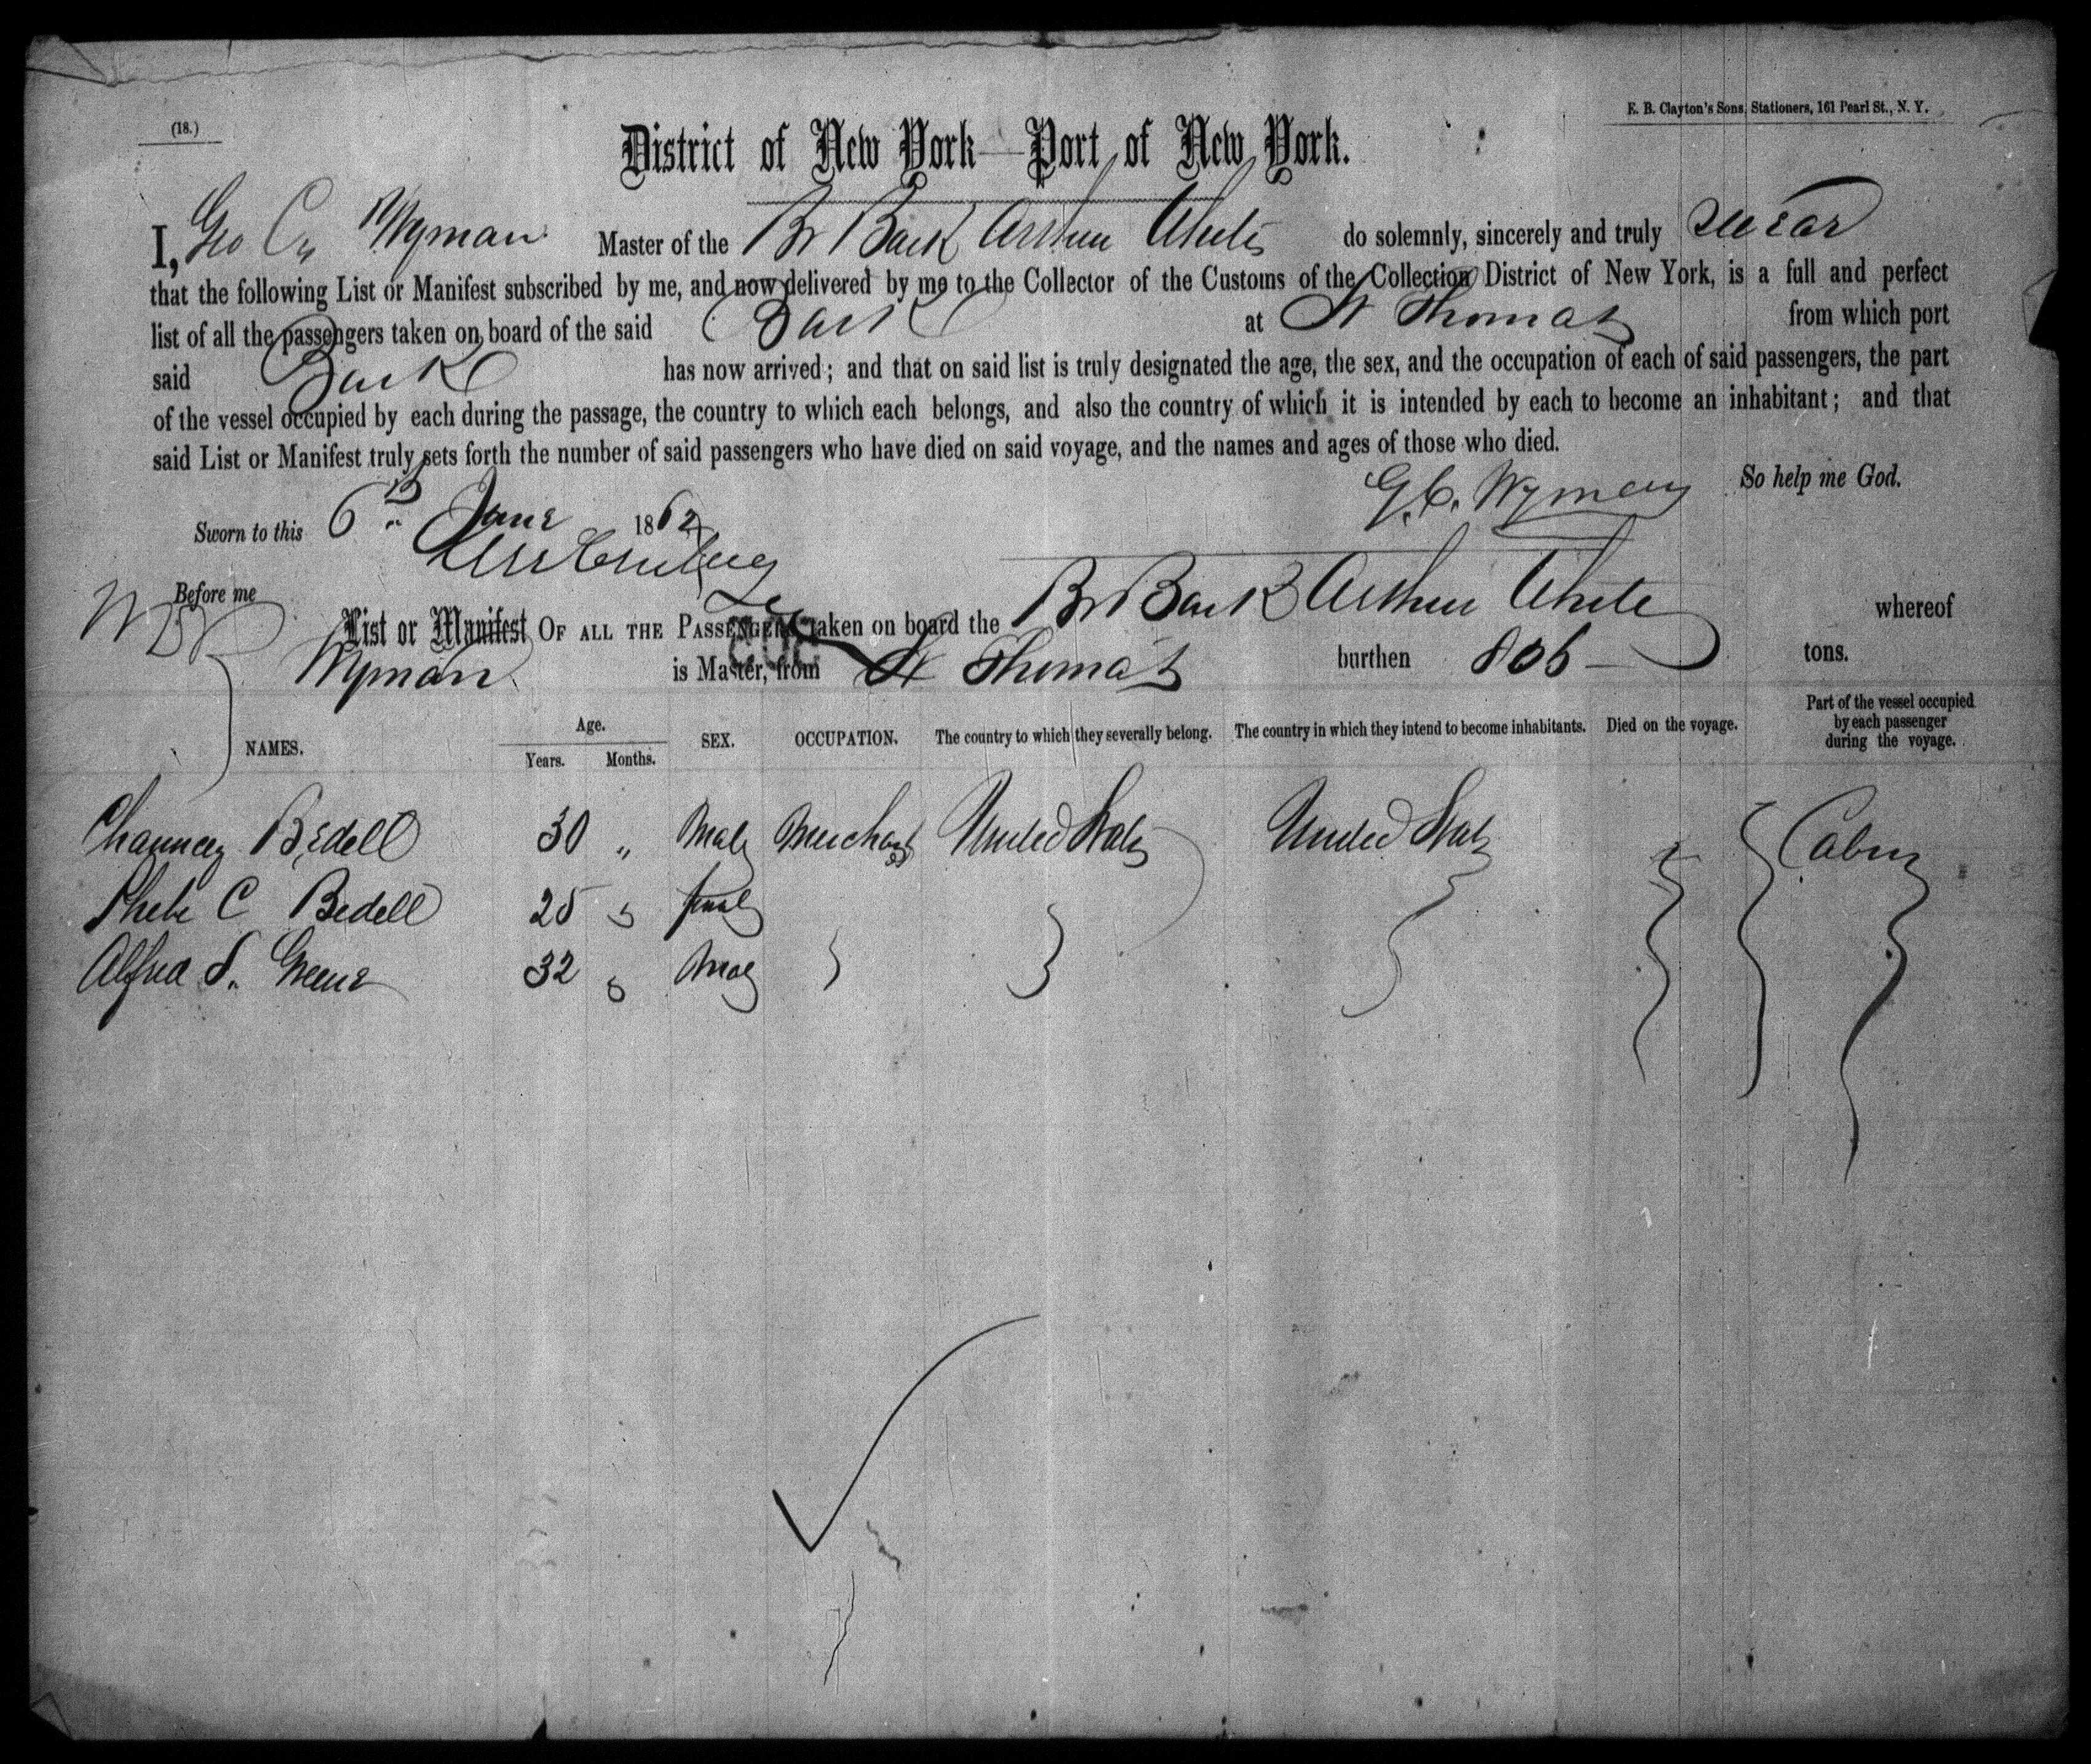 E. B. Clayton's Sons, Stationers, 161 Pearl St., N. Y.
(18.)
District of New York—Port of New York.
I, Geo C. Wyman Master of the Br Bark Arthur White do solemnly, sincerely and truly swear
that the following List or Manifest subscribed by me, and now delivered by me to the Collector of the Customs of the Collection District of New York, is a full and perfect
list of all the passengers taken on board of the said Bark at St Thomas from which port
said Bark has now arrived; and that on said list is truly designated the age, the sex, and the occupation of each of said passengers, the part
of the vessel occupied by each during the passage, the country to which each belongs, and also the country of which it is intended by each to become an inhabitant; and that
said List or Manifest truly sets forth the number of said passengers who have died on said voyage, and the names and ages of those who died.
So help me God.
G. C. Wyman
Sworn to this 6th June 1862
Before me
List or Manifest OF ALL THE PASSENGERS taken on board the Br Bark Arthur White whereof
Wyman is Master, from St Thomas burthen 806 tons.
NAMES. Age. Years. Months. SEX. OCCUPATION. The country to which they severally belong. The country in which they intend to become inhabitants. Died on the voyage. Part of the vessel occupied by each passenger during the voyage.
Chauncey Bedell 30 " Male Merchant United States United States Cabin
Phebe C Bedell 25 " female
Alfred S. Greene 32 " Male